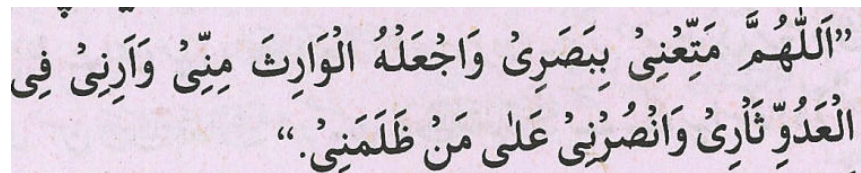 ”اَللّٰهُمَّ مَتِّعْنِیْ بِبَصَرِیْ وَاجْعَلْهُ الْوَارِثَ مِنِّیْ وَاَرِنِیْ فِی
الْعَدُوِّ ثَاْرِیْ وَانْصُرْنِیْ عَلٰی مَنْ ظَلَمَنِیْ.“